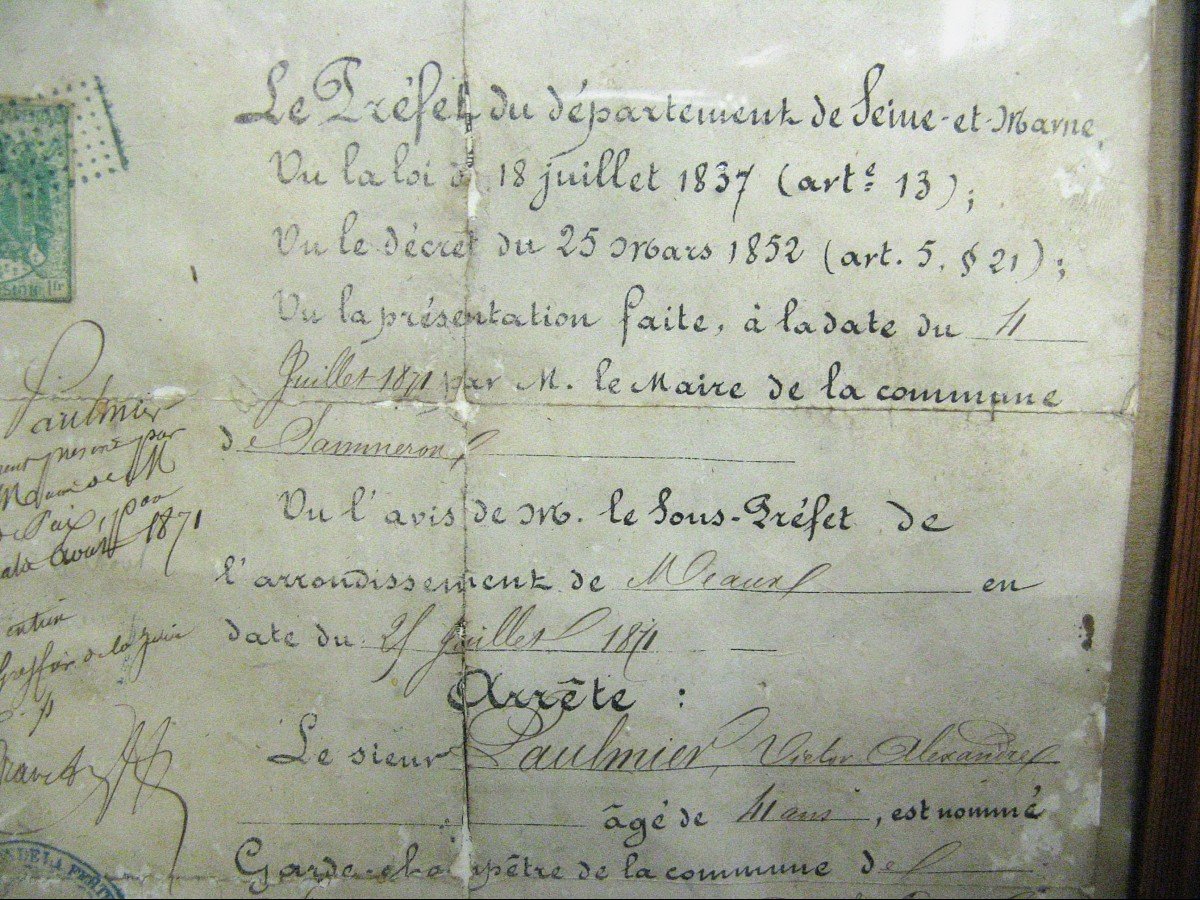 Le Préfet du département de Seine-et-Marne,
Vu la loi d 18 juillet 1837 (art.e 13);
Vu le décret du 25 Mars 1852 (art. 5, § 21);
Vu la présentation faite, à la date du 4
Juillet 1871 par M. le Maire de la commune
de Sammeron
Vu l'avis de M. le Sous-Préfet de
l'arrondissement de Meaux en
date du 25 Juillet 1871
Arrête :
Le sieur Paulmier, Victor Alexandre
âgé de 41 ans, est nommé
Garde-champêtre de la commune de
Paulmier
par
M
Paix, pour
août 1871
Greffier de la
DE LA FERTÉ
1fr